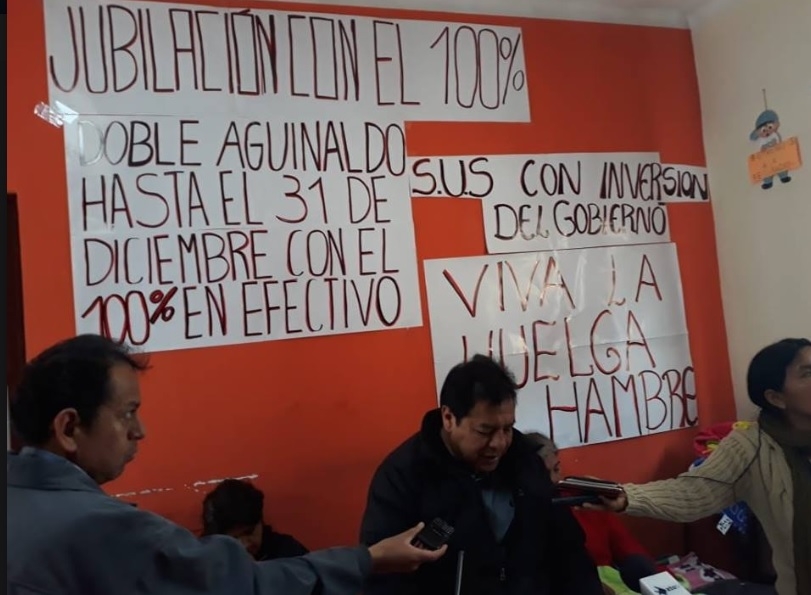 JUBILACIÓN CON EL 100%
DOBLE AGUINALDO
HASTA EL 31 DE
DICIEMBRE CON EL
100% EN EFECTIVO
S.U.S CON INVERSION
DEL GOBIERNO
VIVA LA
HUELGA
HAMBRE